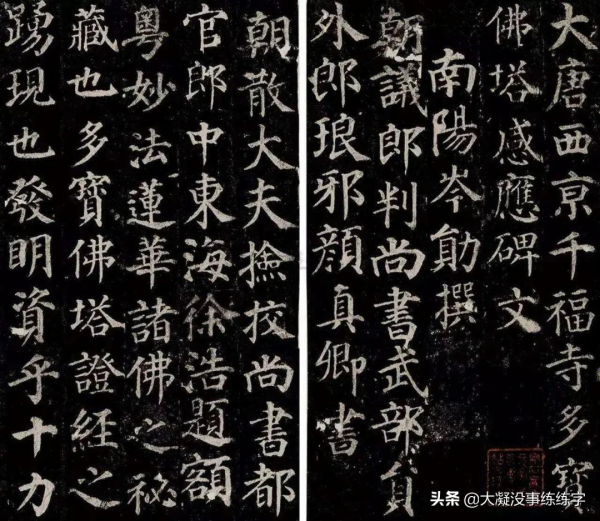 大唐西京千福寺多寶
佛塔感應碑文
南陽岑勛撰
朝議郎判尚書武部員
外郎琅邪顏真卿書
朝散大夫撿挍尚書都
官郎中東海徐浩題額
粵妙法蓮華諸佛之秘
藏也多寶佛塔證經之
踴現也發明資乎十力
头条 @大凝没事练练字